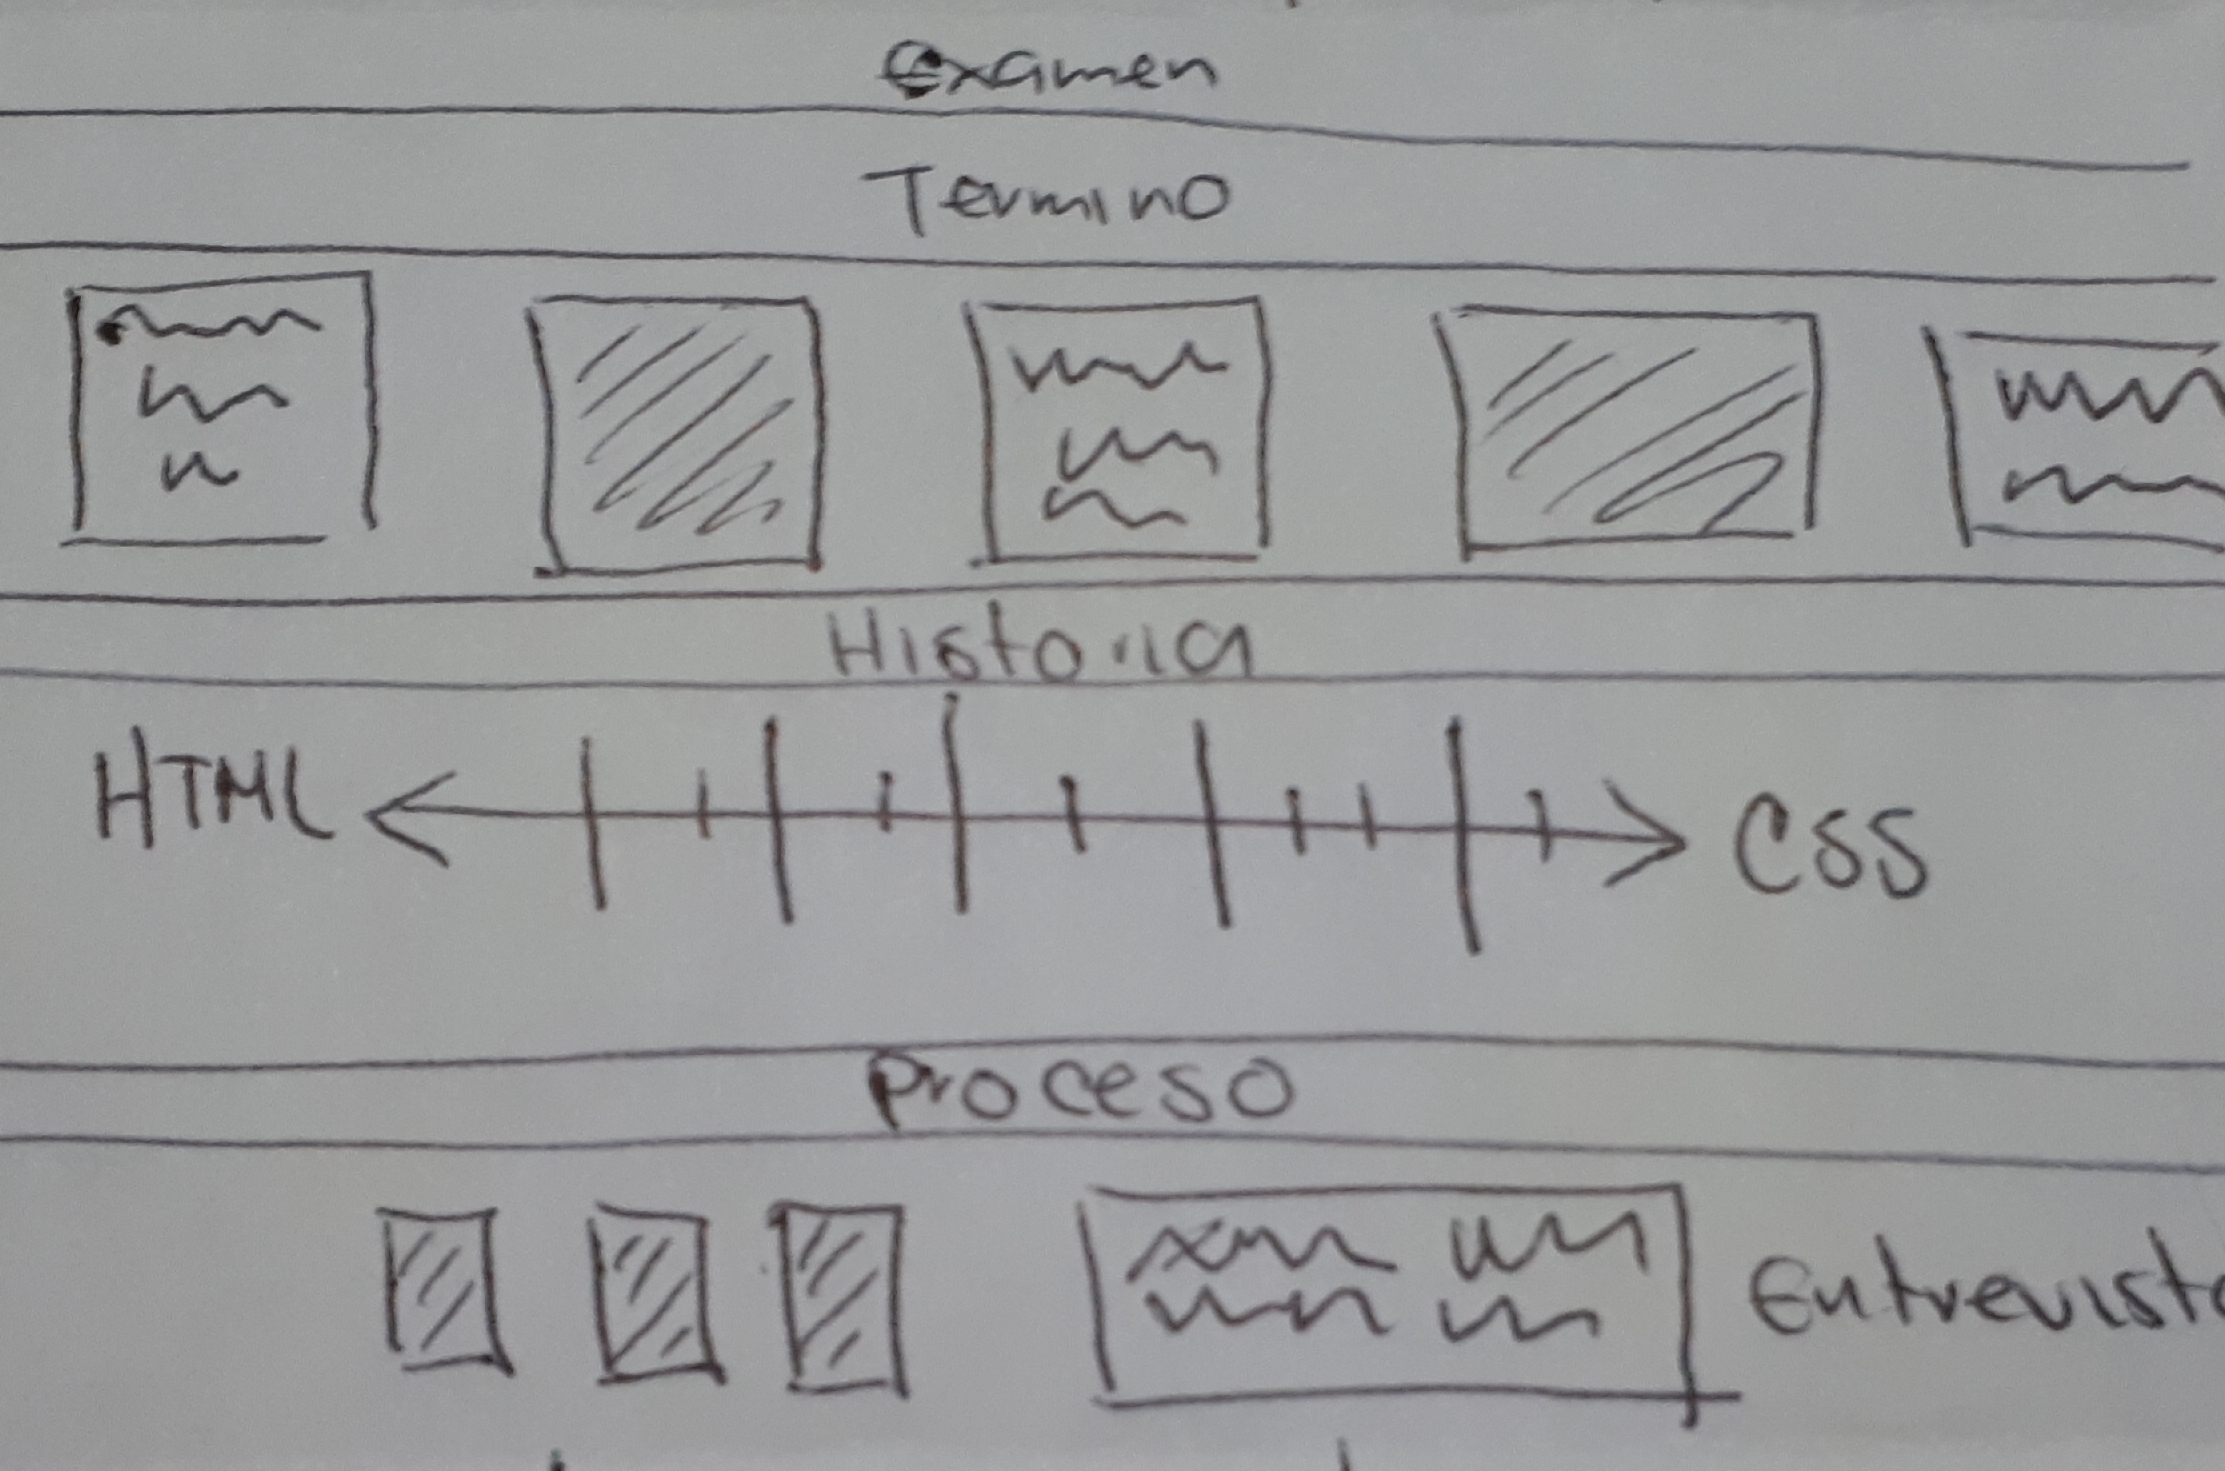 Examen
Termino
Historia
HTML
CSS
Proceso
Entrevista